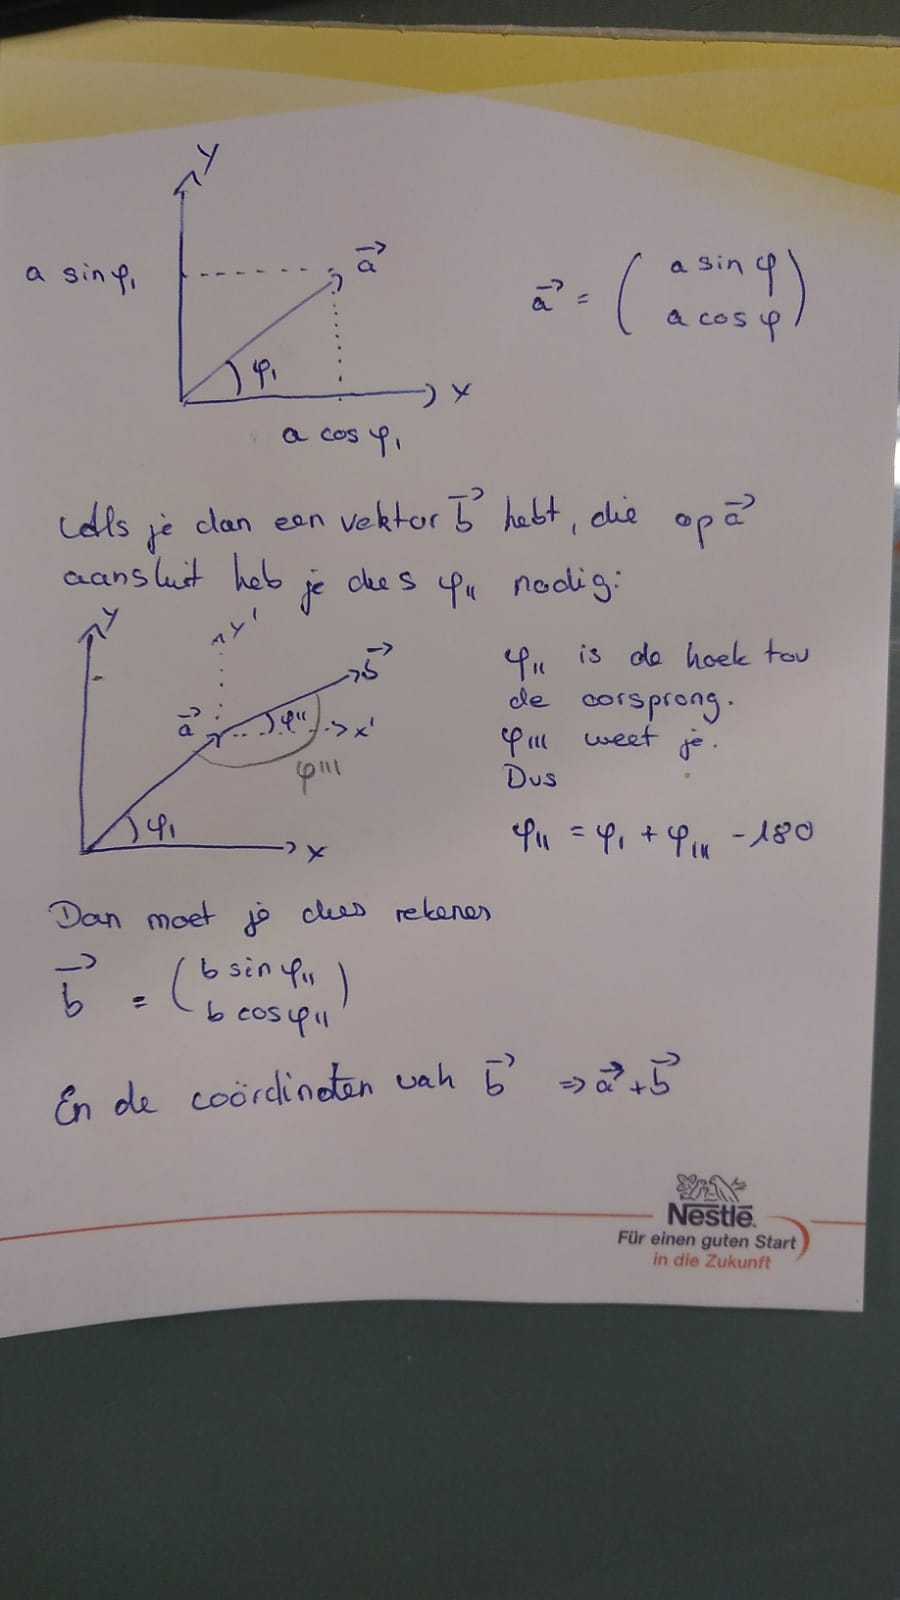 y
a sin φ₁
a⃗
a⃗ = ( a sin φ
a cos φ )
φ₁
x
a cos φ₁
Als je dan een vektor b⃗ hebt, die op a⃗
aansluit heb je dus φ₁₁ nodig:
y
y'
b⃗
a⃗
φ''
x'
φ'''
φ₁
x
φ₁₁ is de hoek tov
de oorsprong.
φ₁₁₁ weet je.
Dus
φ₁₁ = φ₁ + φ₁₁₁ - 180
Dan moet je dus rekenen
b⃗ = ( b sin φ₁₁
b cos φ₁₁ )
En de coördinaten van b⃗ ⇒ a⃗ + b⃗
Nestlé.
Für einen guten Start
in die Zukunft